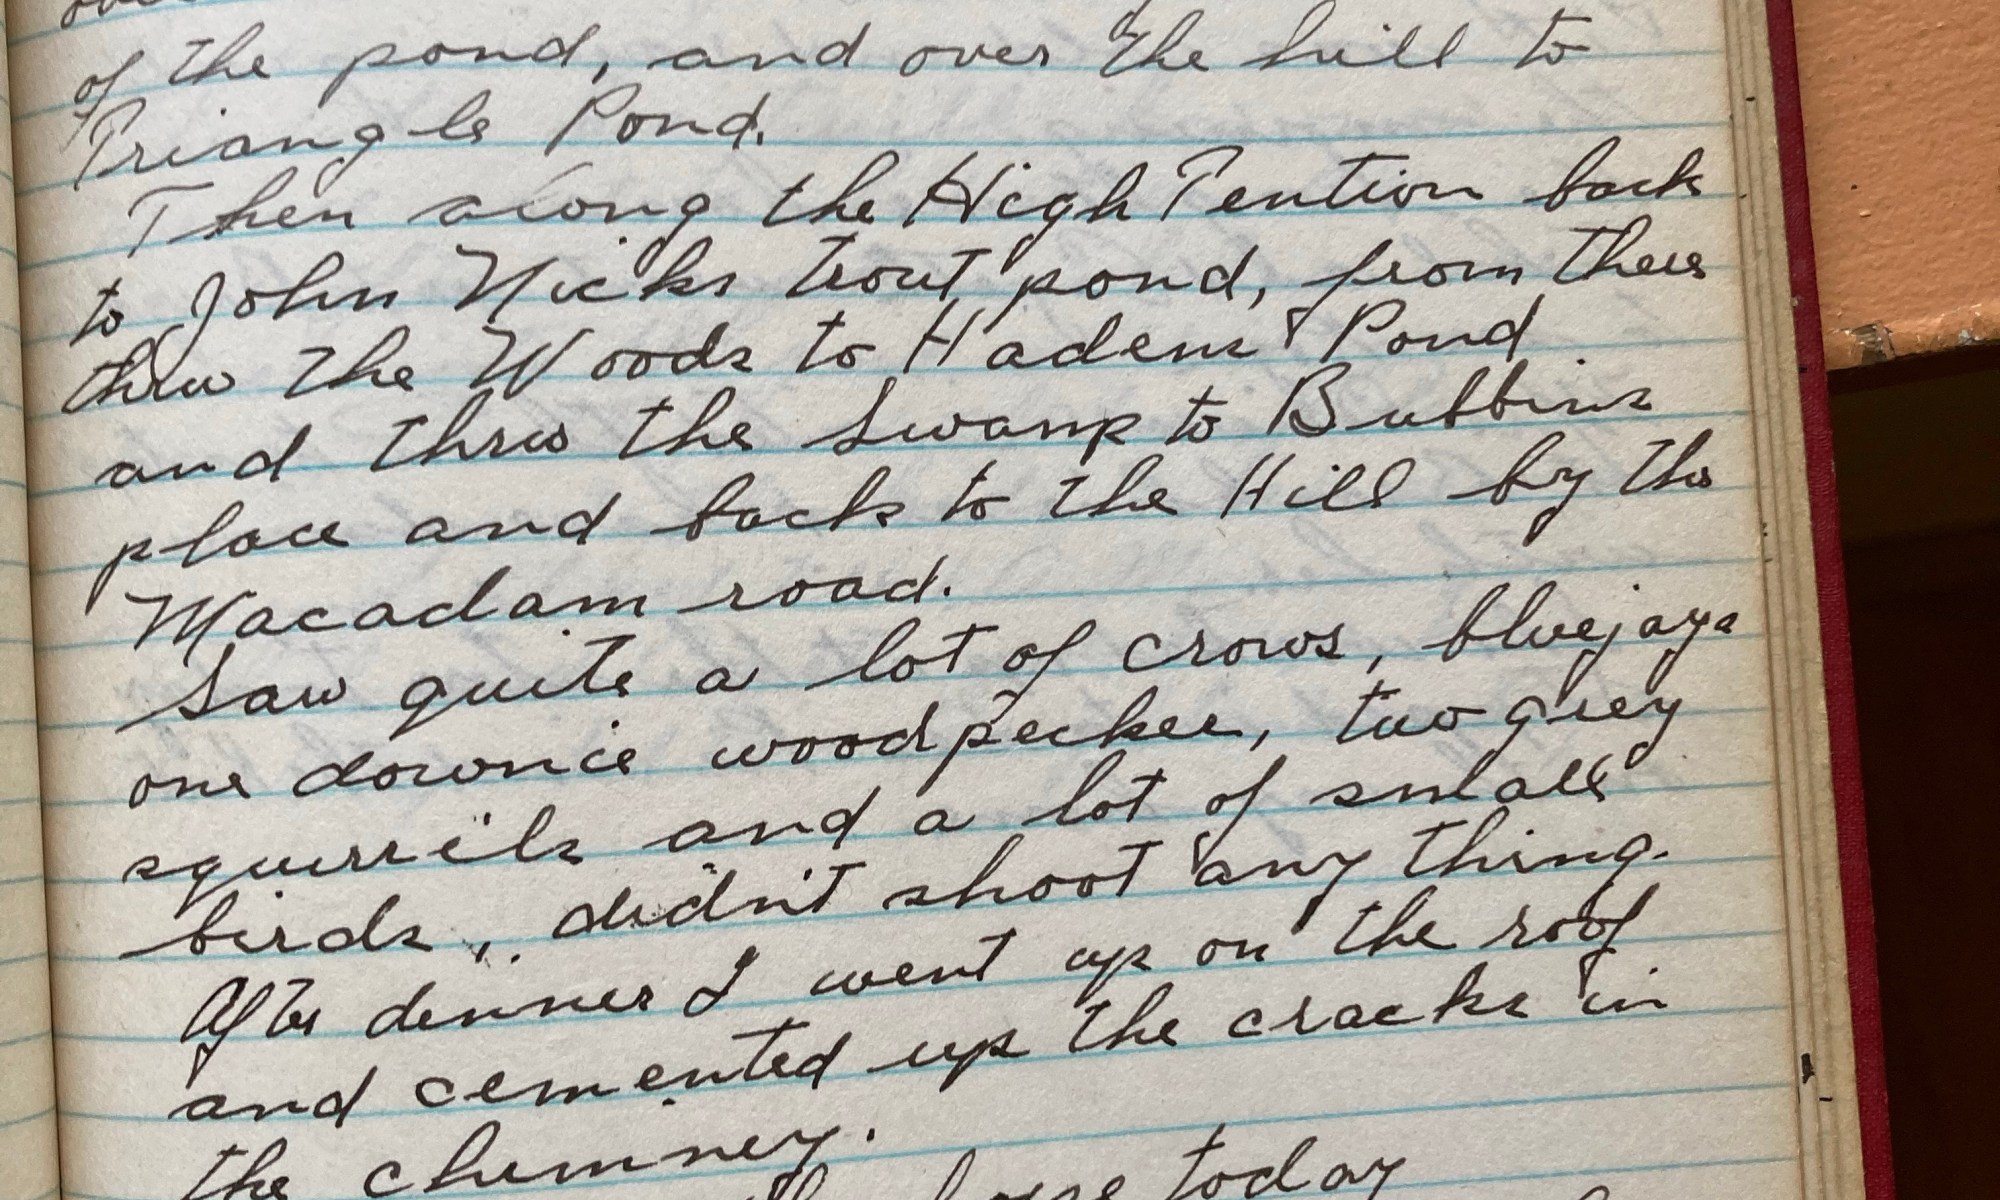 of the pond, and over the hill to
Triangle Pond.
Then along the High Tention back
to John Nicks trout pond, from there
thru the Woods to Hadens Pond
and thru the Swamp to Bubbins
place and back to the Hill by the
Macadam road.
Saw quite a lot of crows, bluejays
one downie woodpecker, two grey
squirrils and a lot of small
birds, didn't shoot any thing.
After dinner I went up on the roof
and cemented up the cracks in
the chimney.
today